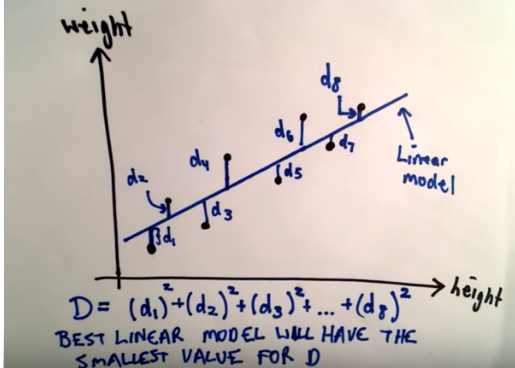 weight
d8
d6
d4
d7
Linear
model
d2
d5
d3
d1
height
D = (d1)²+(d2)²+(d3)²+...+(d8)²
BEST LINEAR MODEL WILL HAVE THE
SMALLEST VALUE FOR D